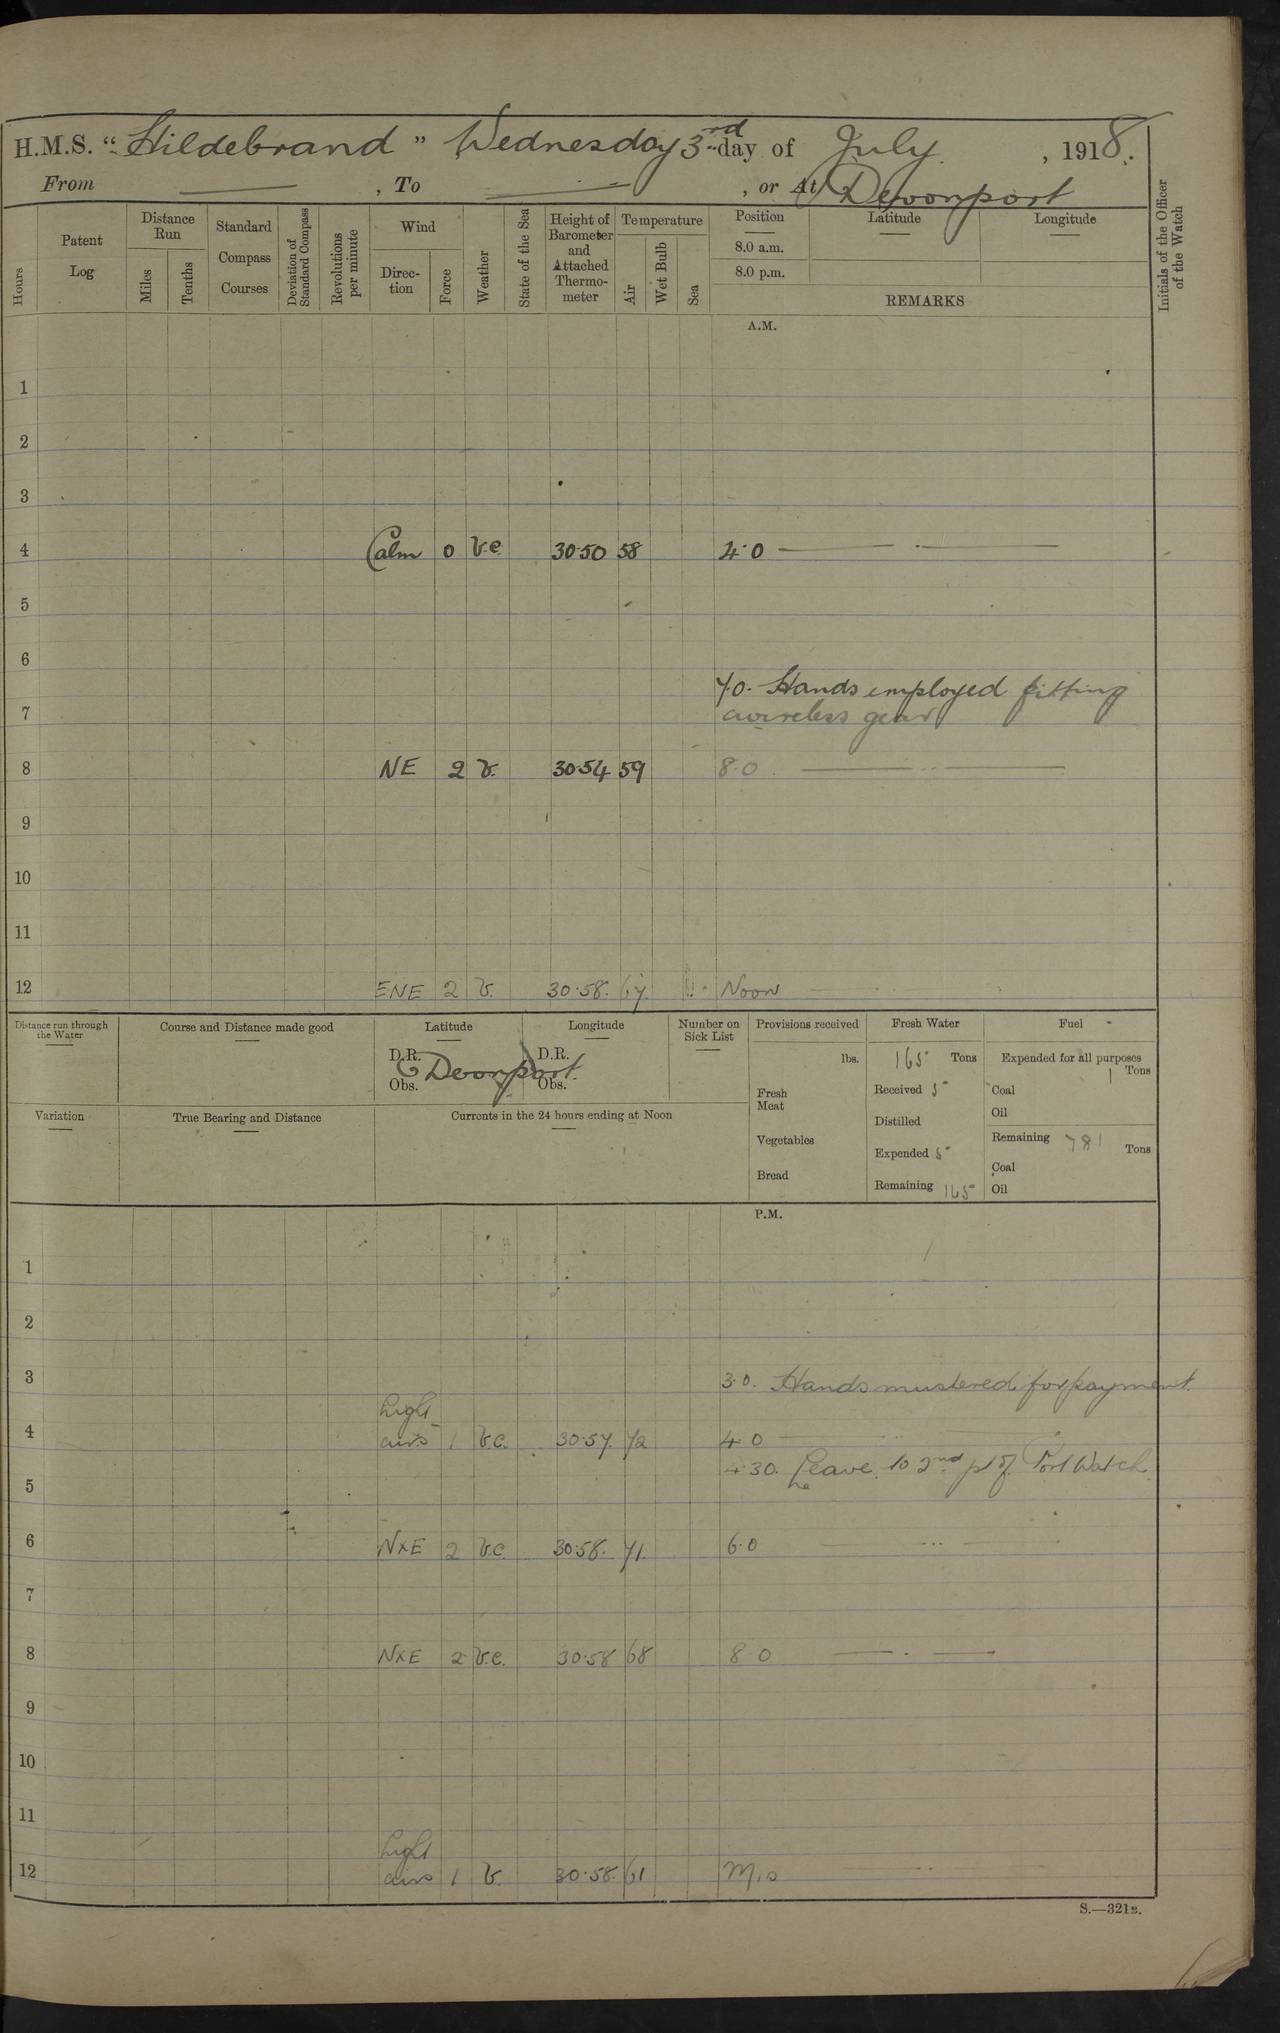 H.M.S. “Hildebrand” Wednesday 3rd day of July, 1918.
From ——, To ——, or At Devonport
Hours
Patent Log
Distance Run
Miles
Tenths
Standard Compass Courses
Deviation of Standard Compass
Revolutions per minute
Wind
Direction
Force
Weather
State of the Sea
Height of Barometer and Attached Thermometer
Temperature
Air
Wet Bulb
Sea
Position
Latitude
Longitude
8.0 a.m.
8.0 p.m.
REMARKS
Initials of the Officer of the Watch
A.M.
1
2
3
4 Calm 0 b.c. 30.50 58 4.0
5
6
7.0. Hands employed fitting
7 wireless gear
8 NE 2 b. 30.54 59 8.0
9
10
11
12 ENE 2 b. 30.58. 67. Noon
Distance run through the Water
Course and Distance made good
Latitude
D.R.
Obs.
Longitude
D.R.
Obs.
Devonport
Number on Sick List
Provisions received
lbs.
Fresh Meat
Vegetables
Bread
Fresh Water
165 Tons
Received 5
Distilled
Expended 5
Remaining 165
Fuel
Expended for all purposes
1 Tons
Coal
Oil
Remaining 781 Tons
Coal
Oil
Variation
True Bearing and Distance
Currents in the 24 hours ending at Noon
P.M.
1
2
3
3.0. Hands mustered for payment.
Light
4 airs 1 b.c. 30.57. 72 4.0
4.30. Leave to 2nd pt of Port Watch.
5
6 NxE 2 b.c. 30.58. 71. 6.0
7
8 NxE 2 b.c. 30.58 68 8.0
9
10
11
Light
12 airs 1 b. 30.58. 61
S.—321B.